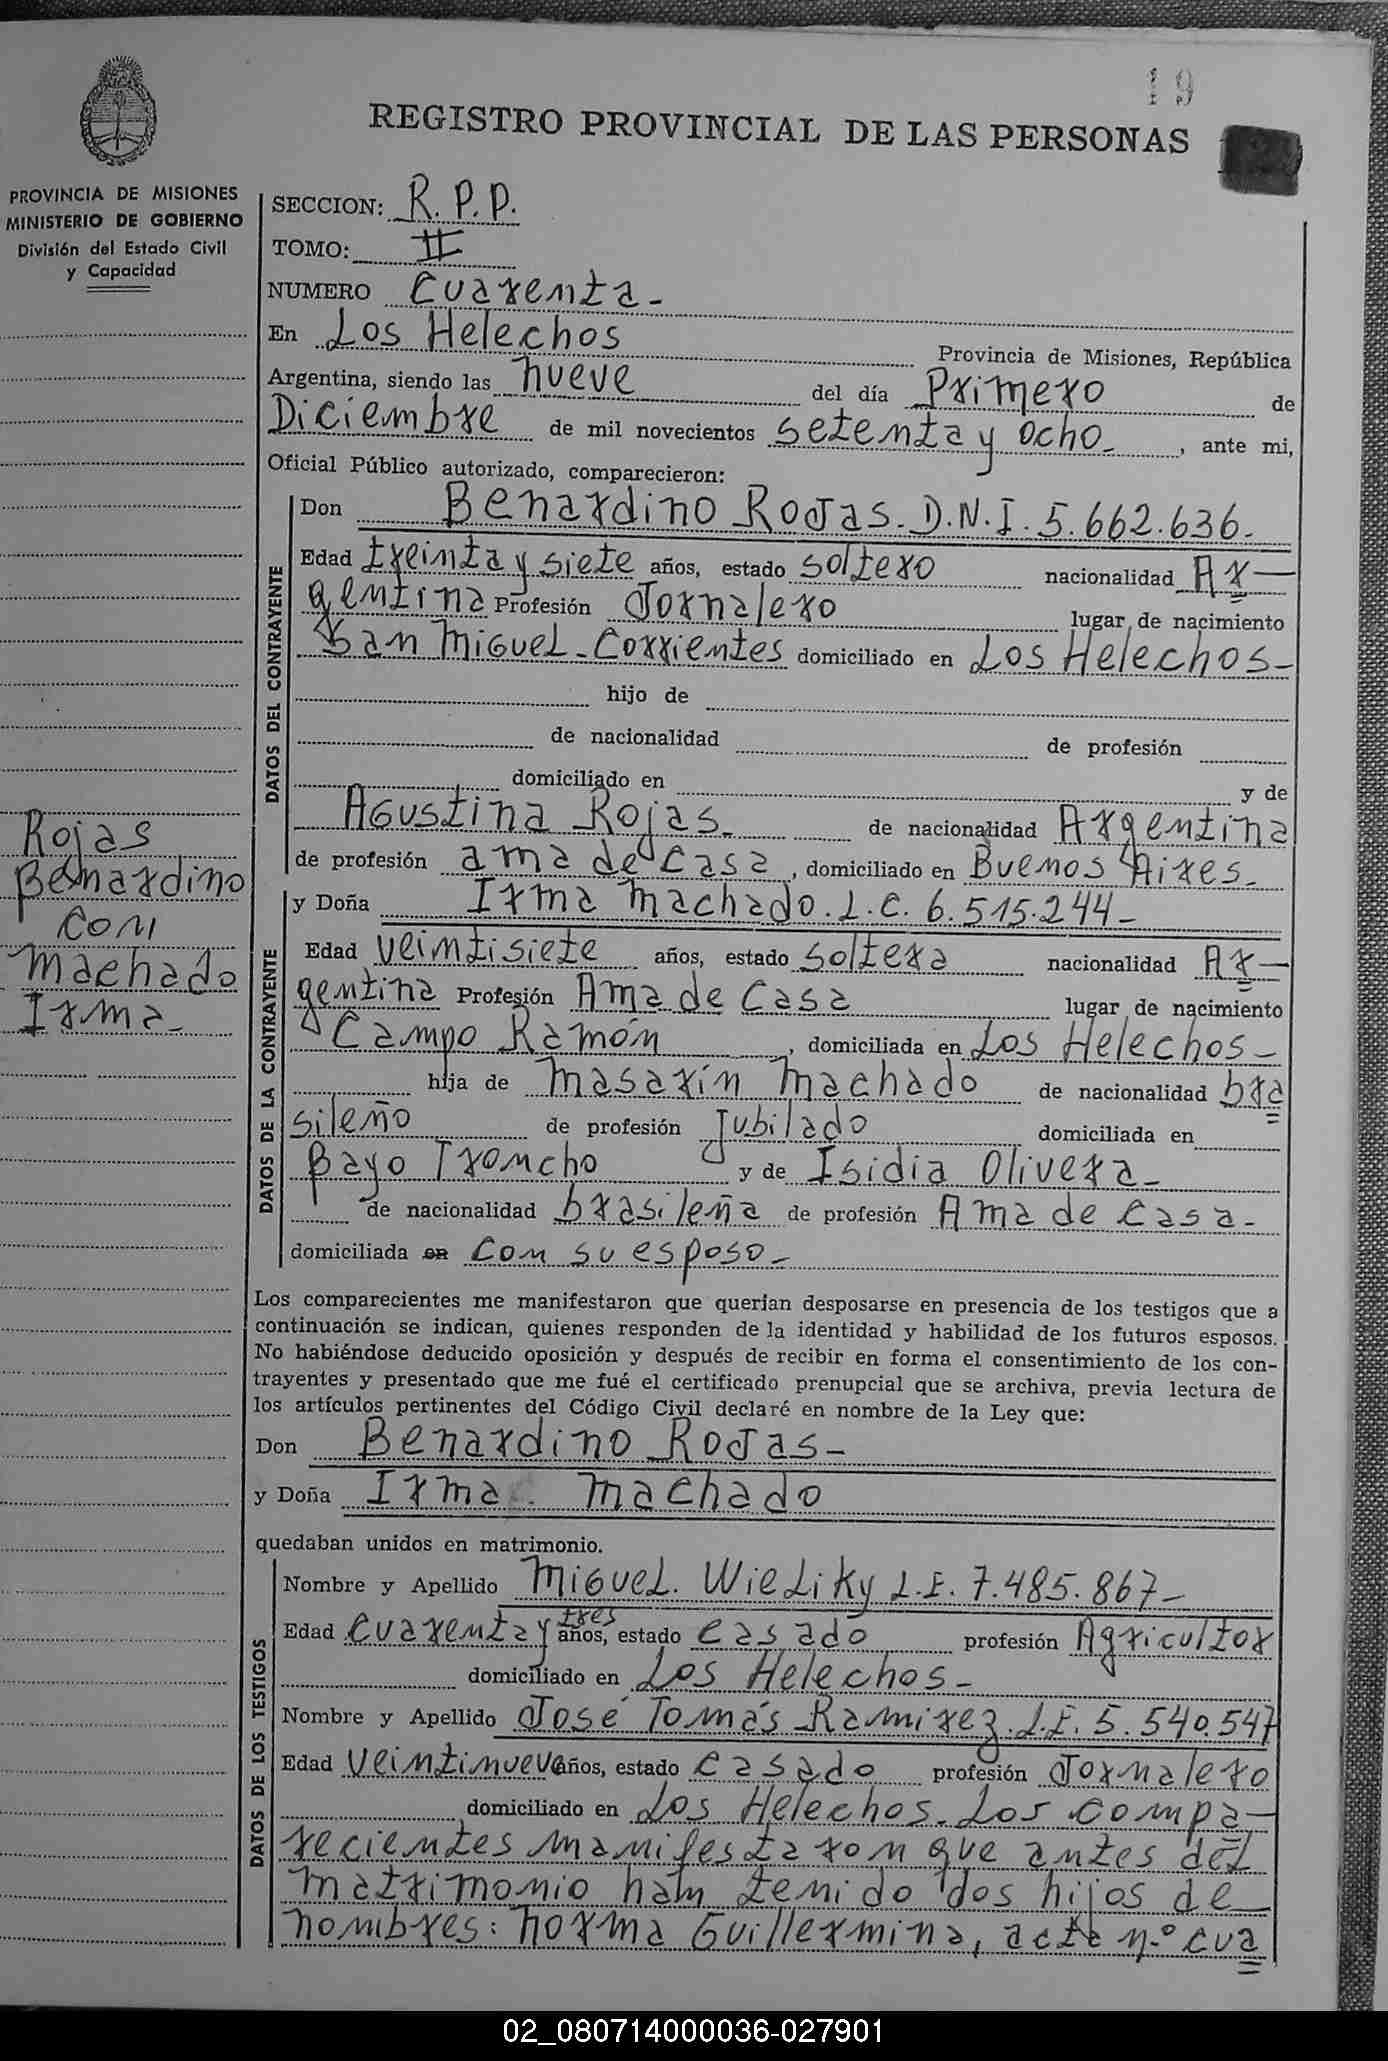 19
REGISTRO PROVINCIAL DE LAS PERSONAS
PROVINCIA DE MISIONES
MINISTERIO DE GOBIERNO
División del Estado Civil
y Capacidad
SECCION: R.P.P.
TOMO: II
NUMERO Cuarenta -
En Los Helechos Provincia de Misiones, República
Argentina, siendo las nueve del día Primero de
Diciembre de mil novecientos setenta y ocho - , ante mi,
Oficial Público autorizado, comparecieron:
DATOS DEL CONTRAYENTE
Don Benardino Rojas. D.N.I. 5.662.636.-
Edad treinta y siete años, estado soltero nacionalidad Ar-
gentina Profesión Jornalero lugar de nacimiento
San Miguel - Corrientes domiciliado en Los Helechos -
hijo de
de nacionalidad de profesión
domiciliado en y de
Agustina Rojas.- de nacionalidad Argentina
de profesión ama de casa , domiciliado en Buenos Aires.-
Rojas
Benardino
con
Machado
Irma -
DATOS DE LA CONTRAYENTE
y Doña Irma Machado. L.C. 6.515.244 -
Edad veintisiete años, estado soltera nacionalidad Ar-
gentina Profesión Ama de Casa lugar de nacimiento
Campo Ramón , domiciliada en Los Helechos -
hija de Masarín Machado de nacionalidad bra
sileño de profesión Jubilado domiciliada en
Bayo Troncho y de Isidia Olivera -
de nacionalidad brasileña de profesión Ama de casa -
domiciliada en con su esposo -
Los comparecientes me manifestaron que querían desposarse en presencia de los testigos que a
continuación se indican, quienes responden de la identidad y habilidad de los futuros esposos.
No habiéndose deducido oposición y después de recibir en forma el consentimiento de los con-
trayentes y presentado que me fué el certificado prenupcial que se archiva, previa lectura de
los artículos pertinentes del Código Civil declaré en nombre de la Ley que:
Don Benardino Rojas -
y Doña Irma Machado
quedaban unidos en matrimonio.
DATOS DE LOS TESTIGOS
Nombre y Apellido Miguel Wieliky L.E. 7.485.867 -
Edad cuarenta y tres años, estado casado profesión Agricultor
domiciliado en Los Helechos -
Nombre y Apellido José Tomás Ramirez. L.E. 5.540.547
Edad veintinueve años, estado casado profesión Jornalero
domiciliado en Los Helechos. Los compa-
recientes manifestaron que antes del
matrimonio han tenido dos hijos de
nombres: Norma Guillermina, acta n.º cua
02_080714000036-027901